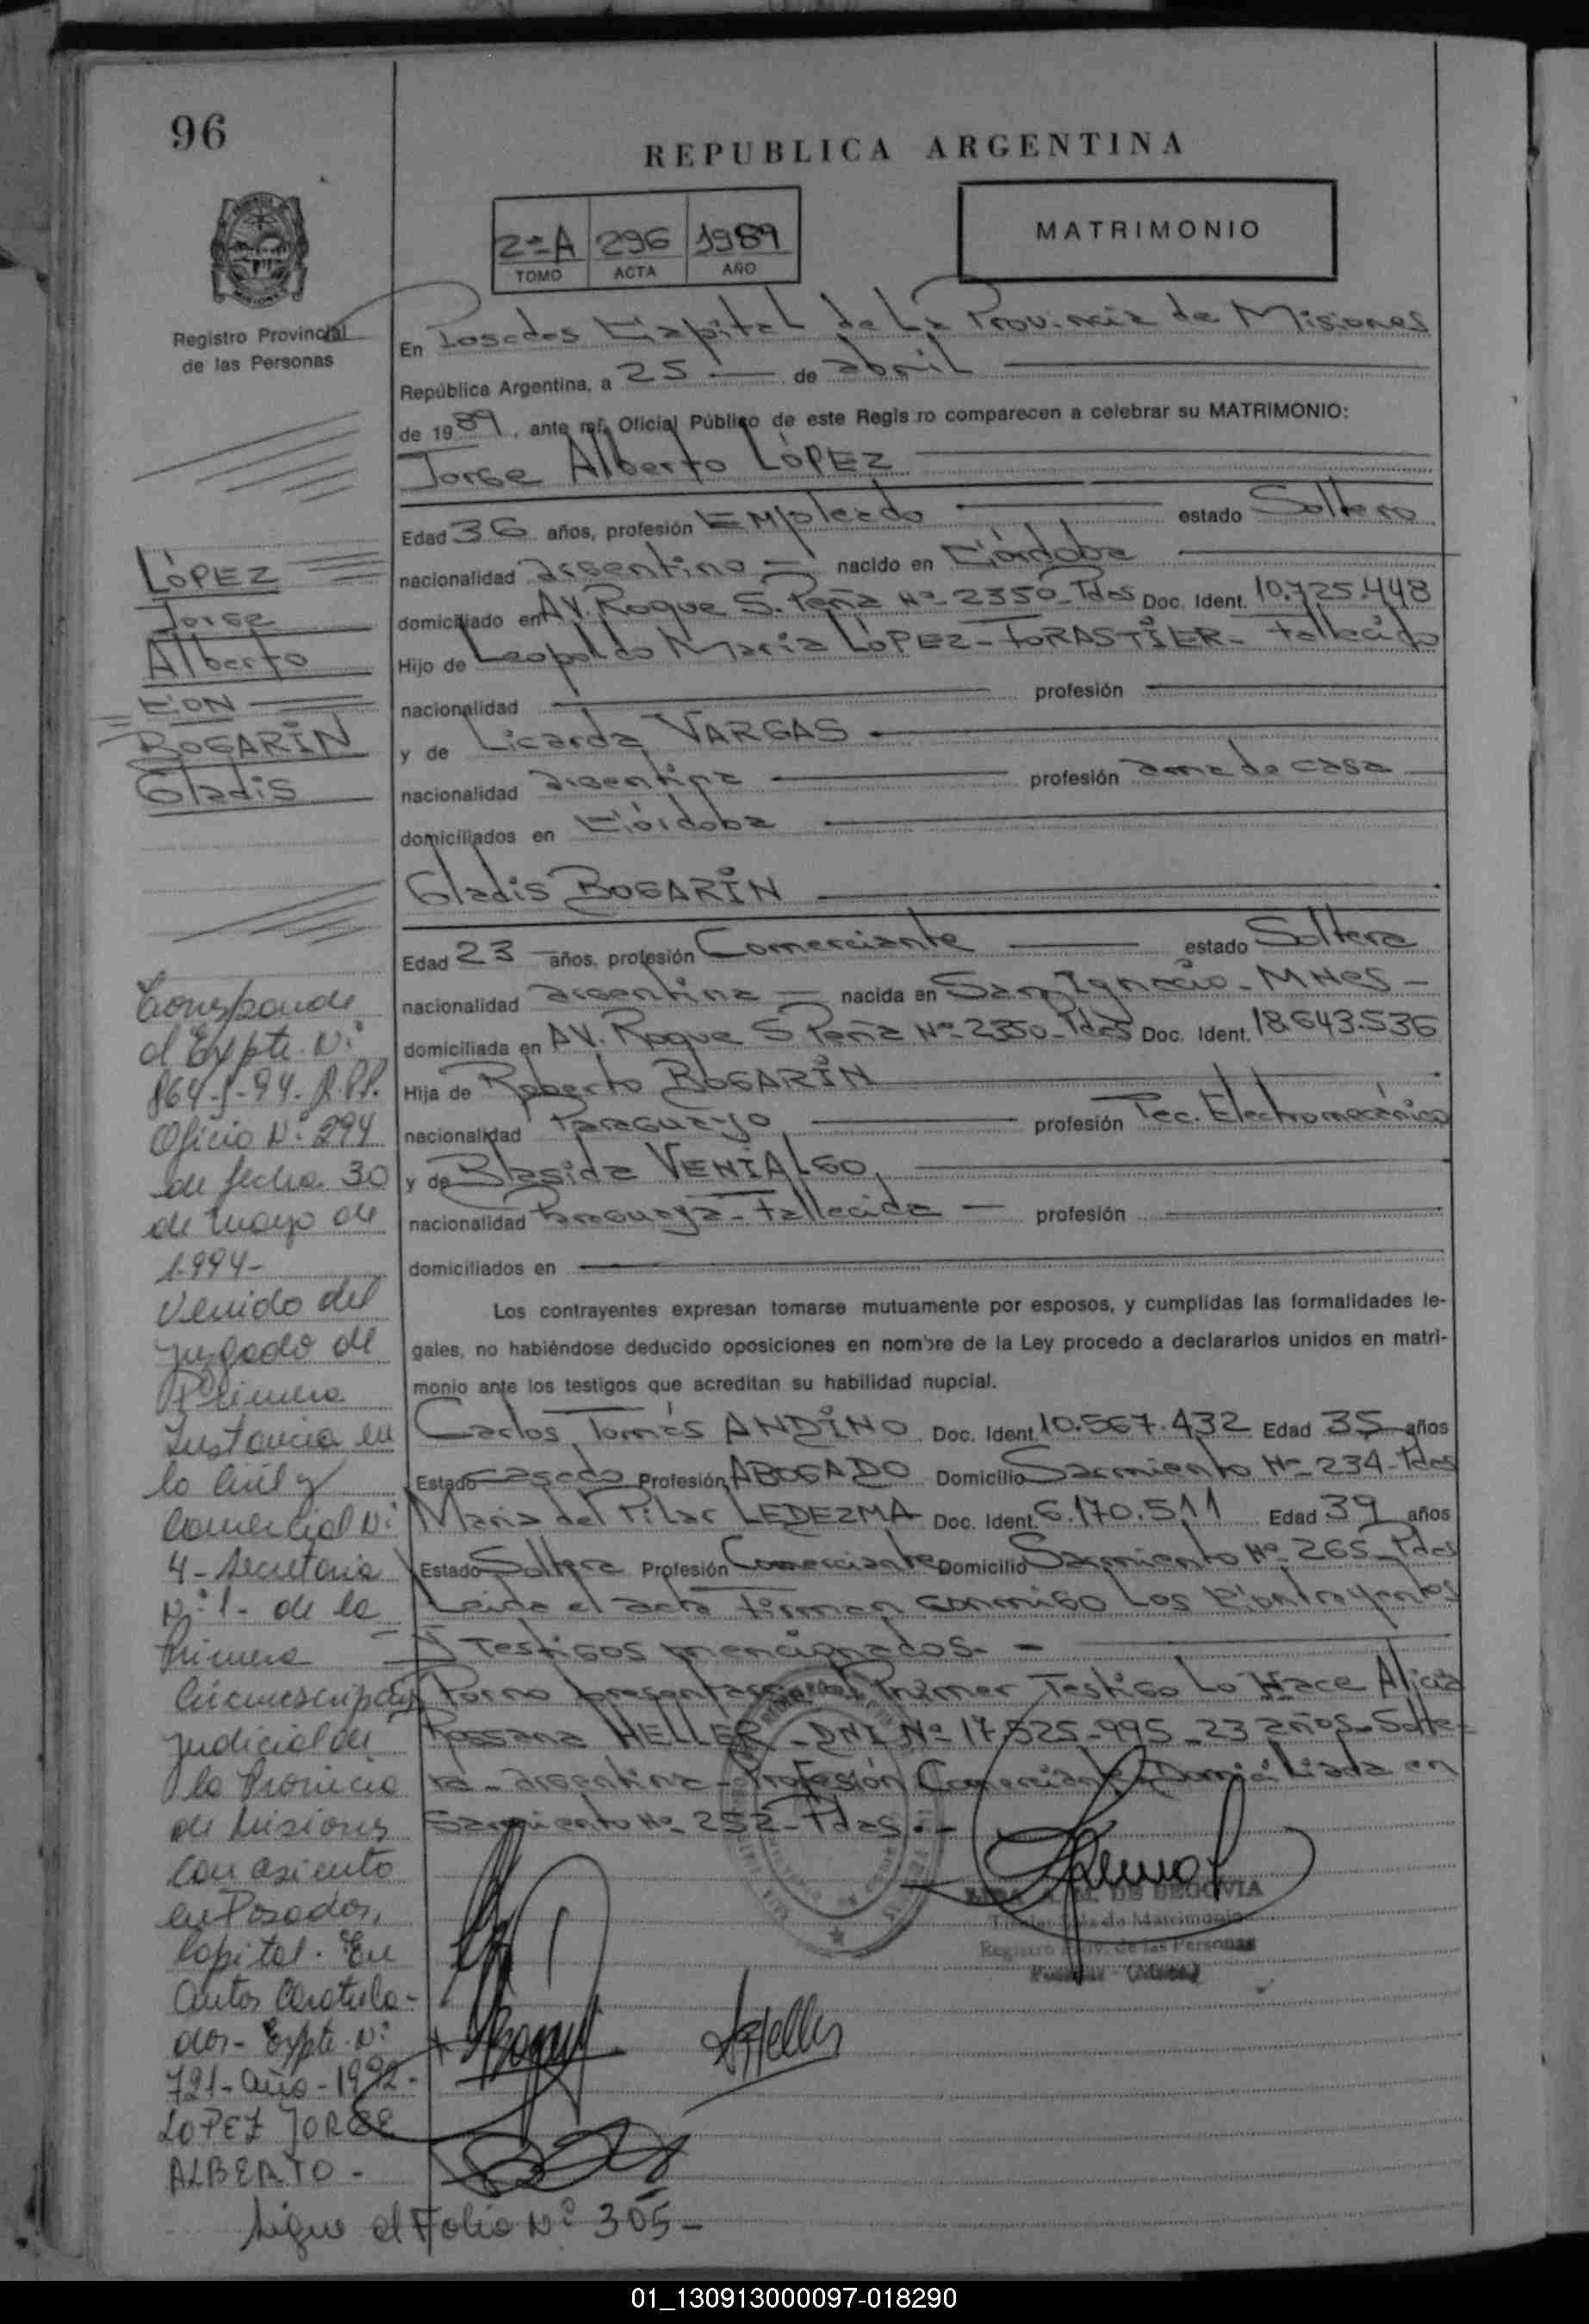 96
REPUBLICA ARGENTINA
2ºA 296 1989
TOMO ACTA AÑO
MATRIMONIO
Registro Provincial
de las Personas
En Posadas Capital de La Provincia de Misiones
República Argentina, a 25 de abril
de 1989, ante mí, Oficial Público de este Regis ro comparecen a celebrar su MATRIMONIO:
Jorge Alberto LÓPEZ
Edad 36 años, profesión Empleado estado Soltero
nacionalidad argentino nacido en Córdoba
domiciliado en AV. Roque S. Peña Nº 2350 - Pdas Doc. Ident. 10.725.448
Hijo de Leopoldo María LÓPEZ - FORASTIER - Fallecido
nacionalidad profesión
y de Licarda VARGAS
nacionalidad argentina profesión ama de casa
domiciliados en Córdoba
Gladis BOGARÍN
Edad 23 años, profesión Comerciante estado Soltera
nacionalidad argentina nacida en San Ignacio - MNES -
domiciliada en AV. Roque S Peña Nº 2350 - Pdas Doc. Ident. 18.643.536
Hija de Roberto BOGARÍN
nacionalidad Paraguayo profesión Tec. Electromecánico
y de Blasida VENIALGO
nacionalidad Paraguaya - Fallecida - profesión
domiciliados en
Los contrayentes expresan tomarse mutuamente por esposos, y cumplidas las formalidades le-
gales, no habiéndose deducido oposiciones en nombre de la Ley procedo a declararlos unidos en matri-
monio ante los testigos que acreditan su habilidad nupcial.
Carlos Tomás ANDINO Doc. Ident. 10.567.432 Edad 35 años
Estado casado Profesión ABOGADO Domicilio Sarmiento Nº 234 - Pdas
Maria del Pilar LEDEZMA Doc. Ident. 6.170.511 Edad 39 años
Estado Soltera Profesión Comerciante Domicilio Sarmiento Nº 265 - Pdas
Leida el acta Firman conmigo Los Contrayentes
y Testigos mencionados. -
Por no presentarse el Primer Testigo Lo Hace Alicia
Rossana HELLER - DNI Nº 17.525.995 - 23 años - Solte-
ra - argentina - Profesión Comerciante Domiciliada en
Sarmiento Nº 252 - Pdas. -
DE SEGOVIA
de Matrimonio
Registro Prov. de las Personas
LÓPEZ
Jorge
Alberto
CON
BOGARÍN
Gladis
Corresponde
al Expte. Nº
864-J-94- R.P.P.
Oficio Nº 294
de fecha 30
de Mayo de
1.994-
Venido del
Juzgado de
Primera
Instancia en
lo Civil y
Comercial Nº
4 - Secretaria
Nº 1 - de la
Primera
Circunscripción
Judicial de
la Provincia
de Misiones
con asiento
en Posadas,
Capital. En
autos Caratula-
dos - Expte. Nº
721 - año - 1992 -
LOPEZ JORGE
ALBERTO -
Sigue al Folio Nº 305 -
01_130913000097-018290